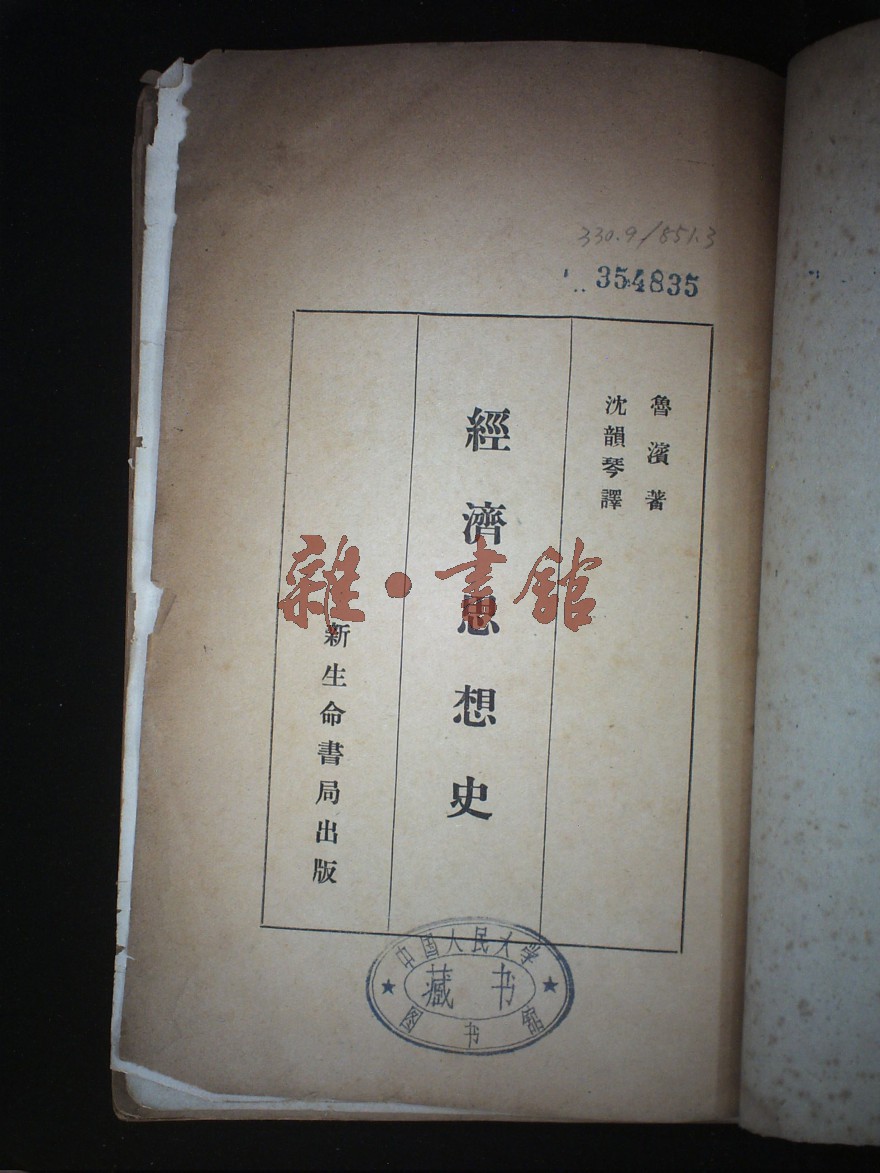 330.9/851.3
354835
魯濱著
沈韻琴譯
經濟思想史
新生命書局出版
雜·書館
中国人民大学
藏书
图书馆